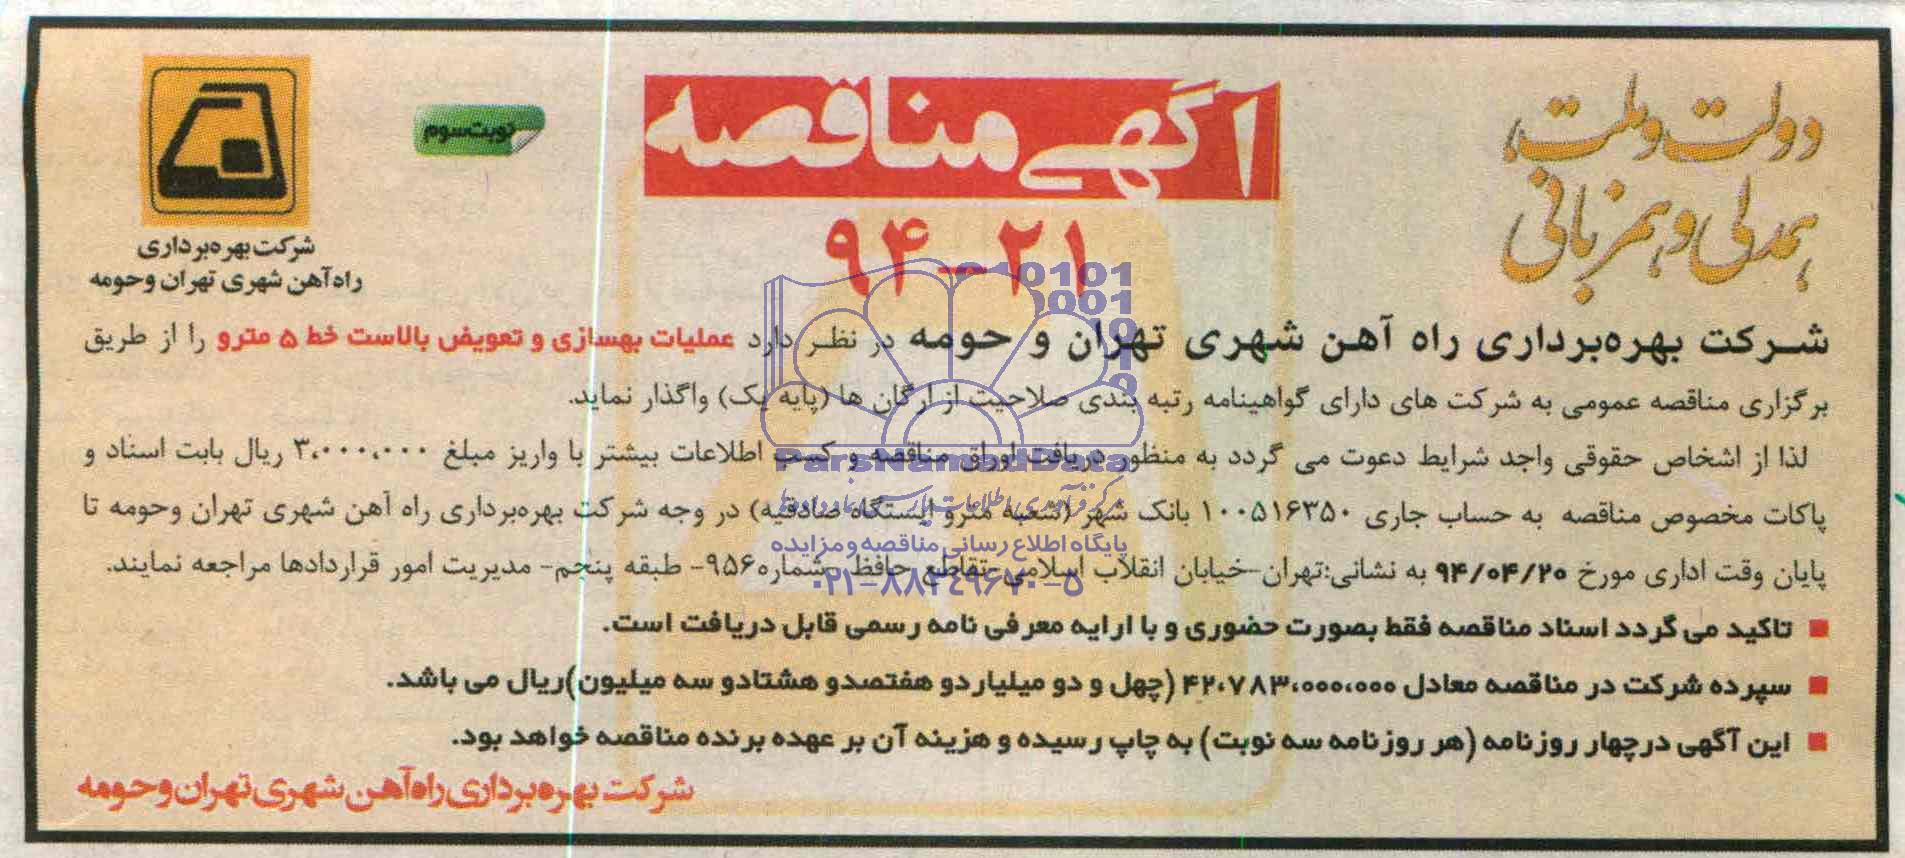 دولت و ملت،
همدلی و همزبانی
آگهی مناقصه
۹۴-۲۱
نوبت سوم
شرکت بهره‌برداری
راه‌آهن شهری تهران و حومه
شرکت بهره‌برداری راه آهن شهری تهران و حومه در نظر دارد عملیات بهسازی و تعویض بالاست خط ۵ مترو را از طریق
برگزاری مناقصه عمومی به شرکت های دارای گواهینامه رتبه بندی صلاحیت از ارگان ها (پایه یک) واگذار نماید.
لذا از اشخاص حقوقی واجد شرایط دعوت می گردد به منظور دریافت اوراق مناقصه و کسب اطلاعات بیشتر با واریز مبلغ ۳،۰۰۰،۰۰۰ ریال بابت اسناد و
پاکات مخصوص مناقصه به حساب جاری ۱۰۰۵۱۶۳۵۰ بانک شهر (شعبه مترو ایستگاه صادقیه) در وجه شرکت بهره‌برداری راه آهن شهری تهران وحومه تا
پایان وقت اداری مورخ ۹۴/۰۴/۲۰ به نشانی:تهران-خیابان انقلاب اسلامی-تقاطع حافظ -شماره۹۵۶- طبقه پنجم- مدیریت امور قراردادها مراجعه نمایند.
تاکید می گردد اسناد مناقصه فقط بصورت حضوری و با ارایه معرفی نامه رسمی قابل دریافت است.
سپرده شرکت در مناقصه معادل ۴۲،۷۸۳،۰۰۰،۰۰۰ (چهل و دو میلیارد و هفتصدو هشتادو سه میلیون)ریال می باشد.
این آگهی درچهار روزنامه (هر روزنامه سه نوبت) به چاپ رسیده و هزینه آن بر عهده برنده مناقصه خواهد بود.
شرکت بهره‌برداری راه‌آهن شهری تهران وحومه
ParsNamadData
پایگاه اطلاع رسانی مناقصه و مزایده